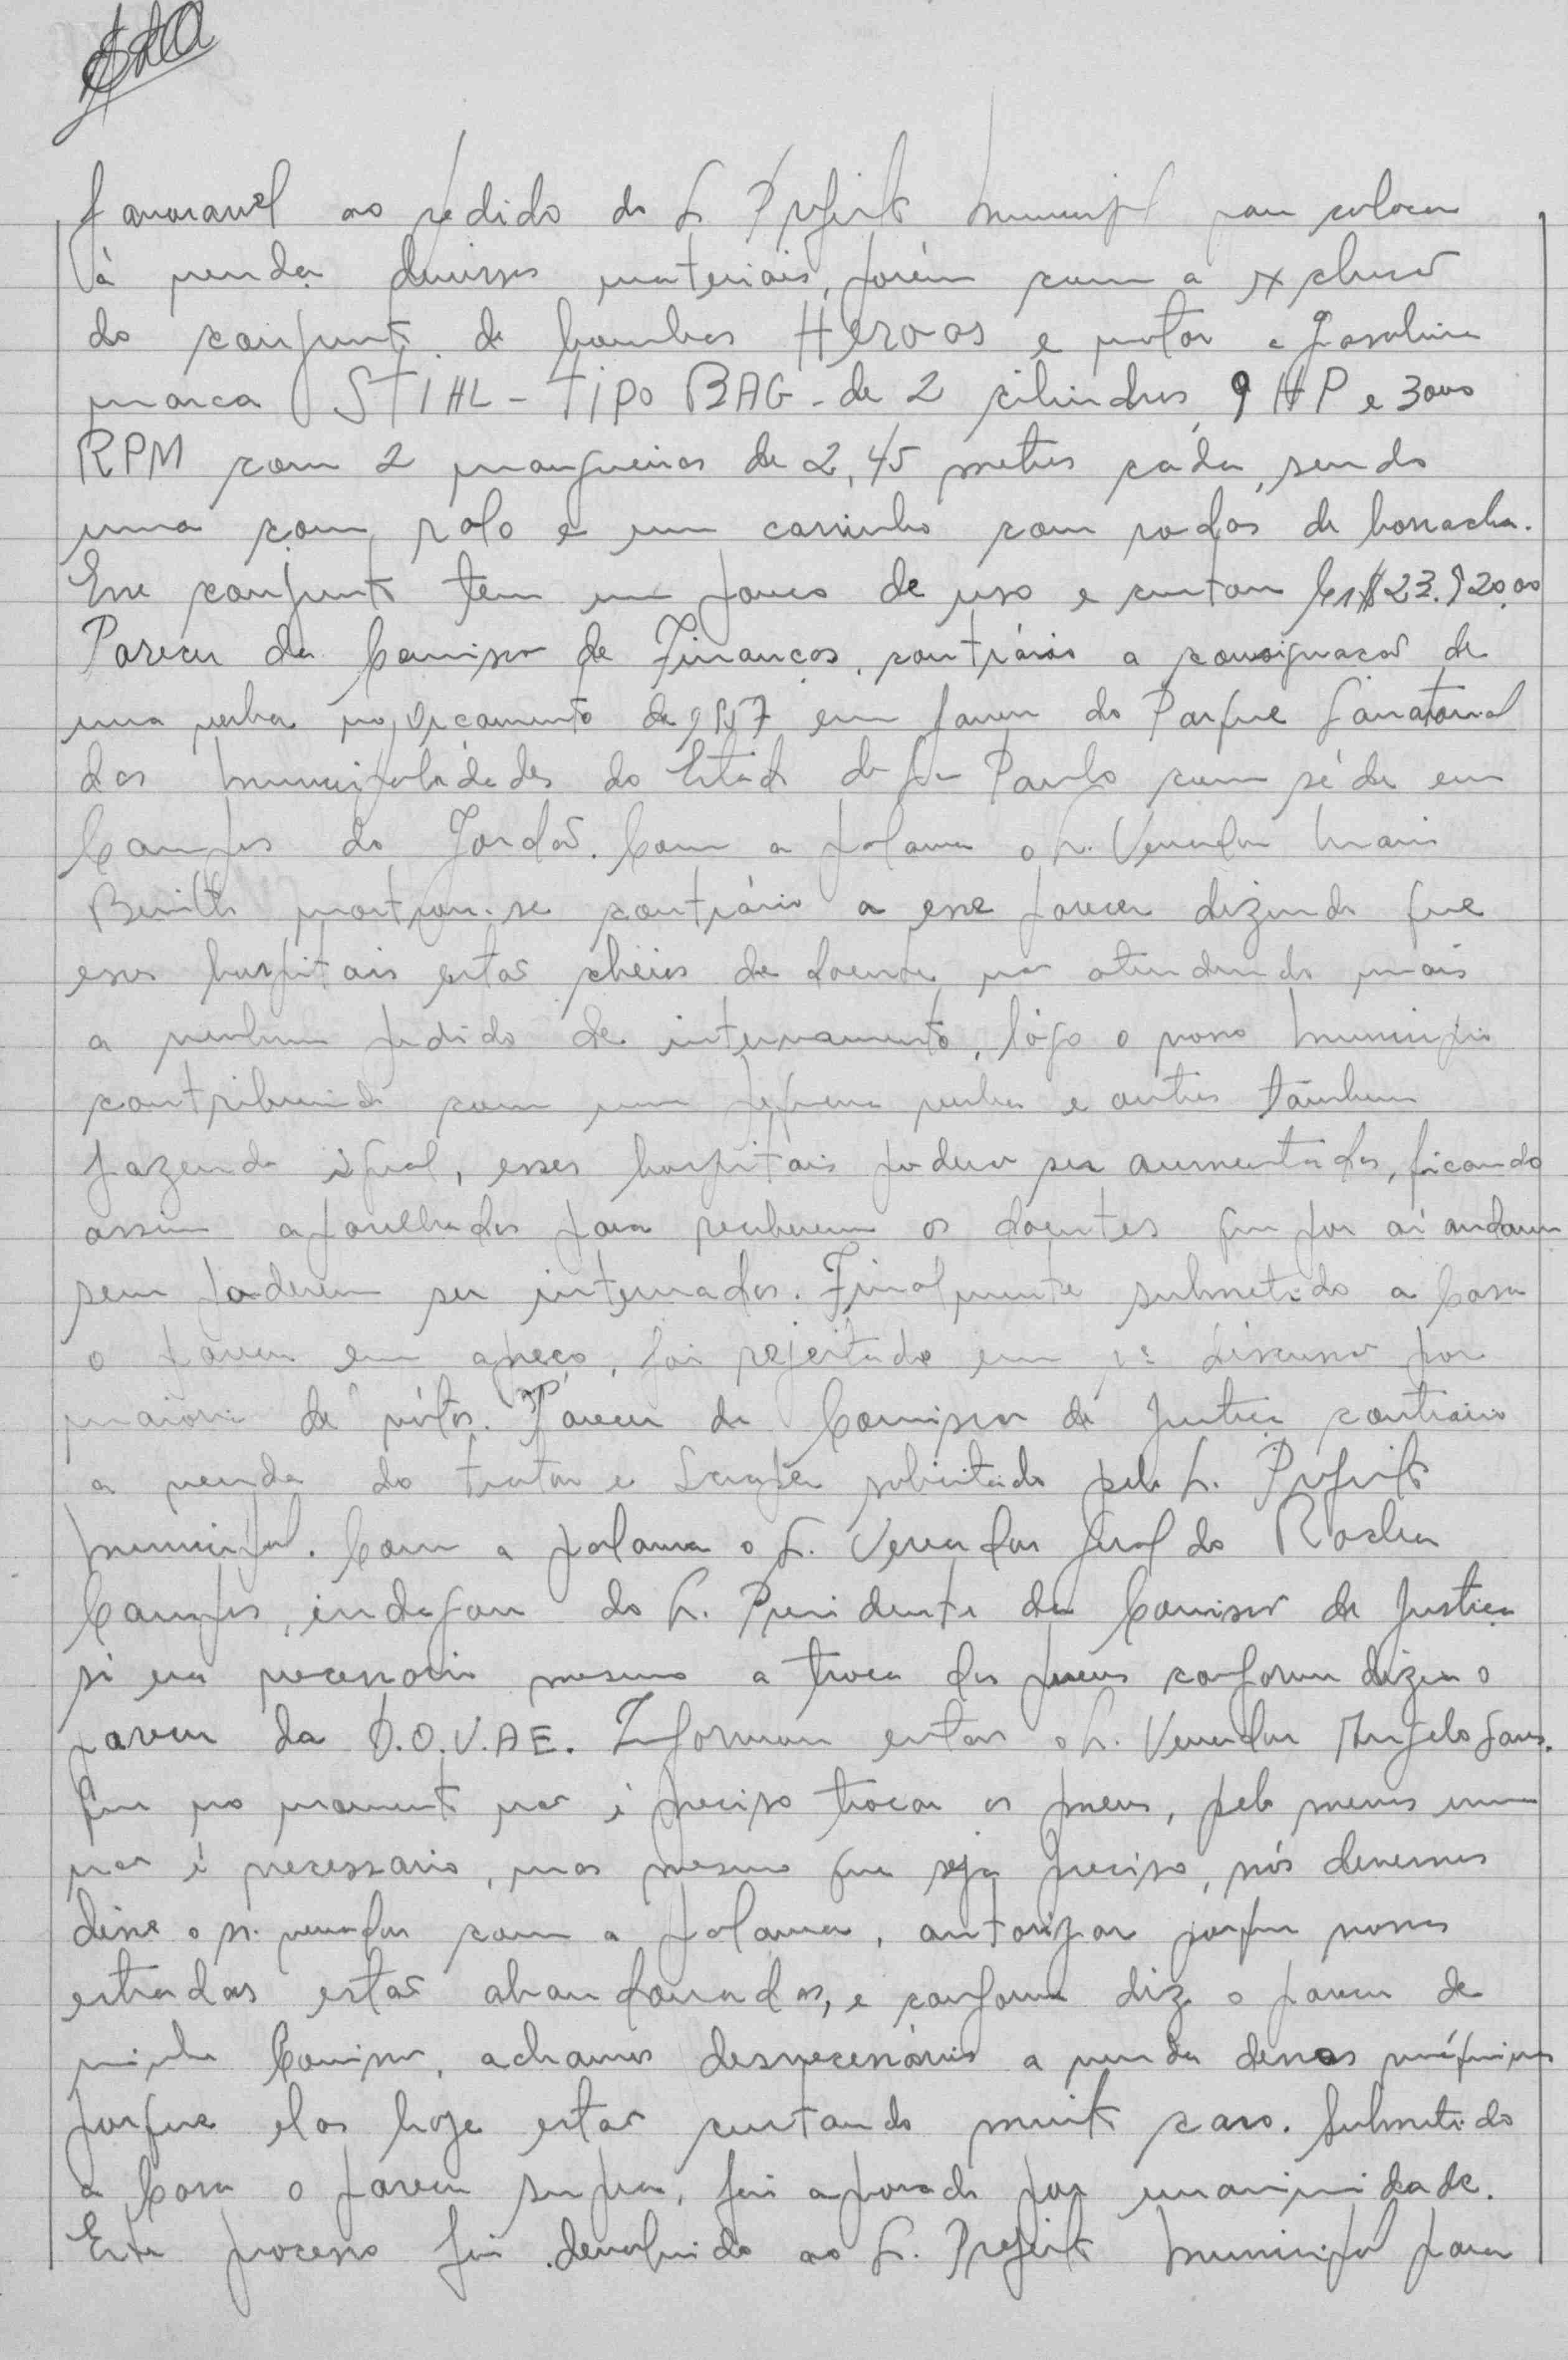 favoravel ao pedido do Sr. Prefeito Municipal para colocar
à venda diversos materiais, porém com a exclusão
do conjunto de bombas Heroas e motor a gasolina
marca STIHL - TIPO BAG - de 2 cilindros, 9 HP e 3000
RPM com 2 mangueiras de 2,45 metros cada, sendo
uma com ralo e um carrinho com rodas de borracha.
Esse conjunto tem um pouco de uso e custou Cr$23.920,00
Parecer da Comissão de Finanças, contrário a consignação de
uma verba no orçamento de 1957 em favor do Parque Sanatorial
das Municipalidades do Estado de São Paulo com séde em
Campos do Jordão. Com a palavra o Sr. Vereador Mario
mostrou-se contrário a esse parecer dizendo que
esses hospitais estão cheios de doentes não atendendo mais
a nenhum pedido de internamento, lógo o nosso Municipio
contribuindo com uma pequena verba e outros também
fazendo igual, esses hospitais poderão ser aumentados, ficando
assim aparelhados para receberem os doentes que por aí andam
sem poderem ser internados. Finalmente submetido a Casa
o parecer em apreço, foi rejeitado em 1ª discussão por
maioria de vótos. Parecer da Comissão de Justiça contrário
a venda do trator e Scraper solicitada pelo Sr. Prefeito
Municipal. Com a palavra o Sr. Vereador Geraldo Rocha
Campos, indagou do Sr. Presidente da Comissão de Justiça
si era necessario mesmo a troca dos pneus conforme dizia o
parecer da D.O.V.AE. Informou então o Sr. Vereador Angelo
que no momento não é preciso trocar os pneus, pelo menos um
não é necessario, mas mesmo que seja preciso, nós devemos
disse o sr. vereador com a palavra, autorizar porque nossas
estradas estão abandonadas, e conforme diz o parecer de
minha Comissão, achamos desnecessário a venda dessas máquinas
porque elas hoje estão custando muito caro. Submetido
a Casa o parecer supra, foi aprovado por unanimidade.
Este processo foi devolvido ao Sr. Prefeito Municipal para